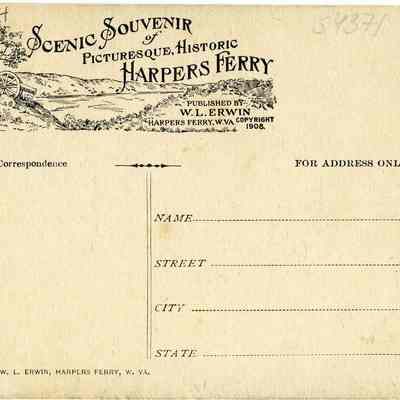 SCENIC SOUVENIR
of
PICTURESQUE, HISTORIC
HARPERS FERRY
PUBLISHED BY
W. L. ERWIN
HARPERS FERRY, W.VA. COPYRIGHT 1908.
S4371
Correspondence
FOR ADDRESS ONL
NAME
STREET
CITY
STATE
W. L. ERWIN, HARPERS FERRY, W. VA.